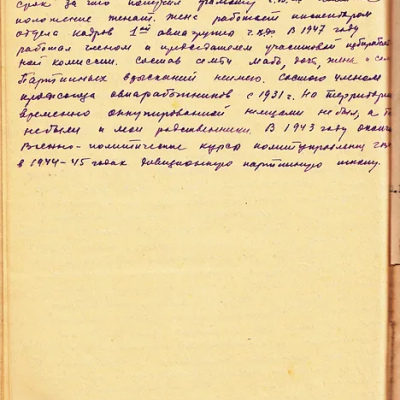 срок за что получил грамоту
положение женат. жена работает инспектором
отдела кадров 1ой авиагруппы г.в.ф. В 1947 году
работал членом и председателем участковой избиратель
ной комиссии. Состав семьи мать, дочь, жена и
Партийных взысканий не имею. Состою членом
профсоюза авиаработников с 1931 г. На территории
временно оккупированной немцами не был, а т
не были и мои родственники. В 1943 году окончил
Военно-политические курсы политуправления г.в.ф
в 1944-45 годах дивизионную партийную школу.